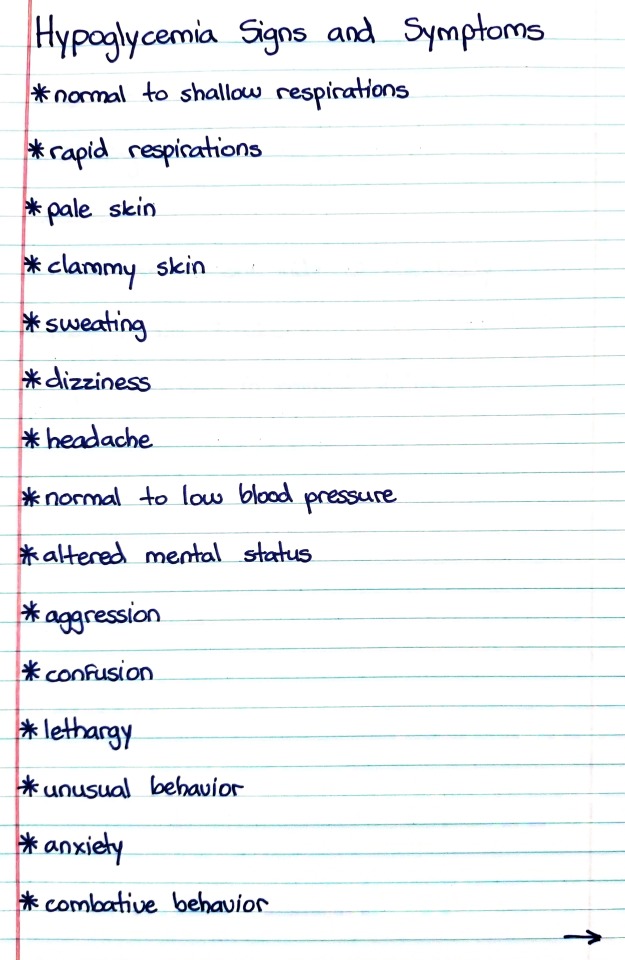 Hypoglycemia Signs and Symptoms
*normal to shallow respirations
*rapid respirations
*pale skin
*clammy skin
*sweating
*dizziness
*headache
*normal to low blood pressure
*altered mental status
*aggression
*confusion
*lethargy
*unusual behavior
*anxiety
*combative behavior
→